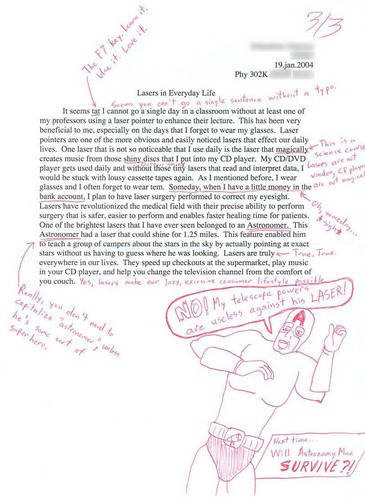 3/3
The F7 key. Learn it.
Use it. Love it.
19.jan.2004
Phy 302K
Lasers in Everyday Life
Seems you can't go a single sentence without a typo.
It seems tat I cannot go a single day in a classroom without at least one of
my professors using a laser pointer to enhance their lecture. This has been very
beneficial to me, especially on the days that I forget to wear my glasses. Laser
pointers are one of the more obvious and easily noticed lasers that effect our daily
lives. One laser that is not so noticeable that I use daily is the laser that magically
creates music from those shiny discs that I put into my CD player. My CD/DVD
player gets used daily and without those tiny lasers that read and interpret data, I
would be stuck with lousy cassette tapes again. As I mentioned before, I wear
glasses and I often forget to wear tem. Someday, when I have a little money in the
bank account, I plan to have laser surgery performed to correct my eyesight.
Lasers have revolutionized the medical field with their precise ability to perform
surgery that is safer, easier to perform and enables faster healing time for patients.
One of the brightest lasers that I have ever seen belonged to an Astronomer. This
Astronomer had a laser that could shine for 1.25 miles. This feature enabled him
to teach a group of campers about the stars in the sky by actually pointing at exact
stars without us having to guess where he was looking. Lasers are truly
everywhere in our lives. They speed up checkouts at the supermarket, play music
in your CD player, and help you change the television channel from the comfort of
you couch.
This is a
science course
Lasers are not
are not magical
Oh, someday...
*sigh*
True, True.
Yes, lasers make our lazy, excessive consumer lifestyle possible.
Really, you don't need to
capitalize "astronomer" unless
he's some sort of
superhero.
NO! My telescope powers
are useless against his LASER!
Next time...
Will Astronomy Man
SURVIVE?!